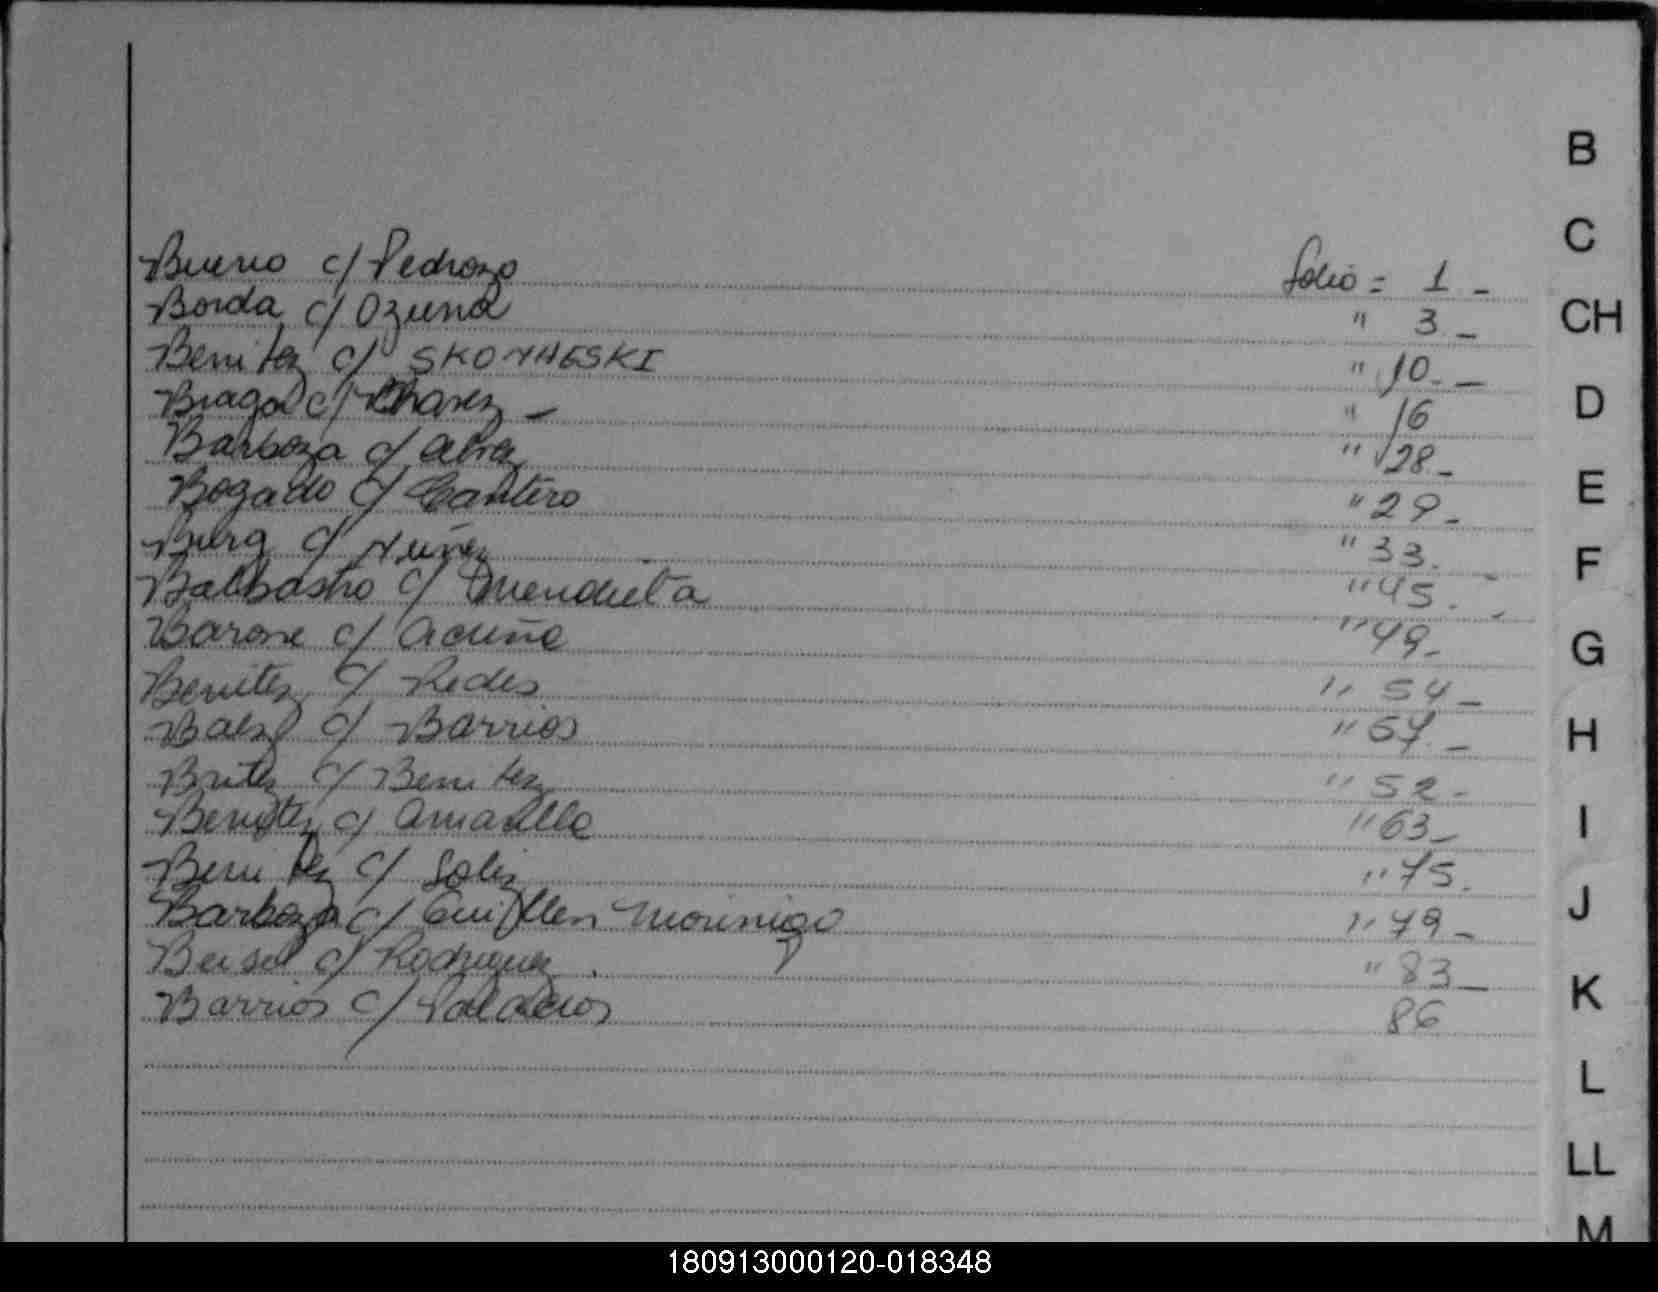 Bueno c/ Pedrozo folio = 1 -
Borda c/ Ozuna " 3 -
Benitez c/ SKO " 10. -
Braga c/ Chavez - " 16
Barboza c/ " 28 -
Bogado c/ Cantero " 29 -
Burg c/ Nuñez " 33.
Balbastro c/ Mendieta " 45.
Barone c/ Acuña " 49 -
Benitez c/ Redes " 54 -
Baez c/ Barrios " 57. -
Britez c/ Benitez " 52 -
Benitez c/ Amarilla " 63 -
Benitez c/ Soliz " 75.
Barboza c/ Guillen Morinigo " 79 -
c/ Rodriguez. " 83 -
Barrios c/ Palacios 86
B
C
CH
D
E
F
G
H
I
J
K
L
LL
M
180913000120-018348